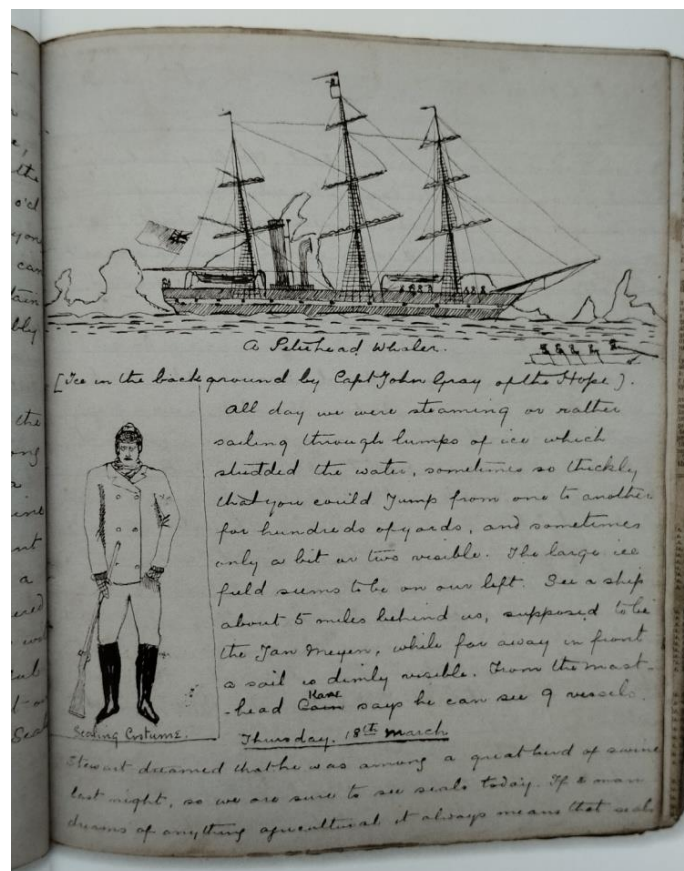 the
o'd
can
the
a
a
A Peterhead Whaler.
[Ice in the background by Capt John Gray of the Hope].
All day we were steaming or rather
sailing through lumps of ice which
studded the water, sometimes so thickly
that you could jump from one to another
for hundreds of yards, and sometimes
only a bit or two visible. The large ice
field seems to be on our left. See a ship
about 5 miles behind us, supposed to be
the Jan Meyen, while far away in front
a sail is dimly visible. From the mast-
Kane
-head Cain says he can see 9 vessels.
Sealing Costume.
Thursday. 18th March
Stewart dreamed that he was among a great herd of swine
last night, so we are sure to see seals today. If a man
dreams of anything agricultural it always means that seals